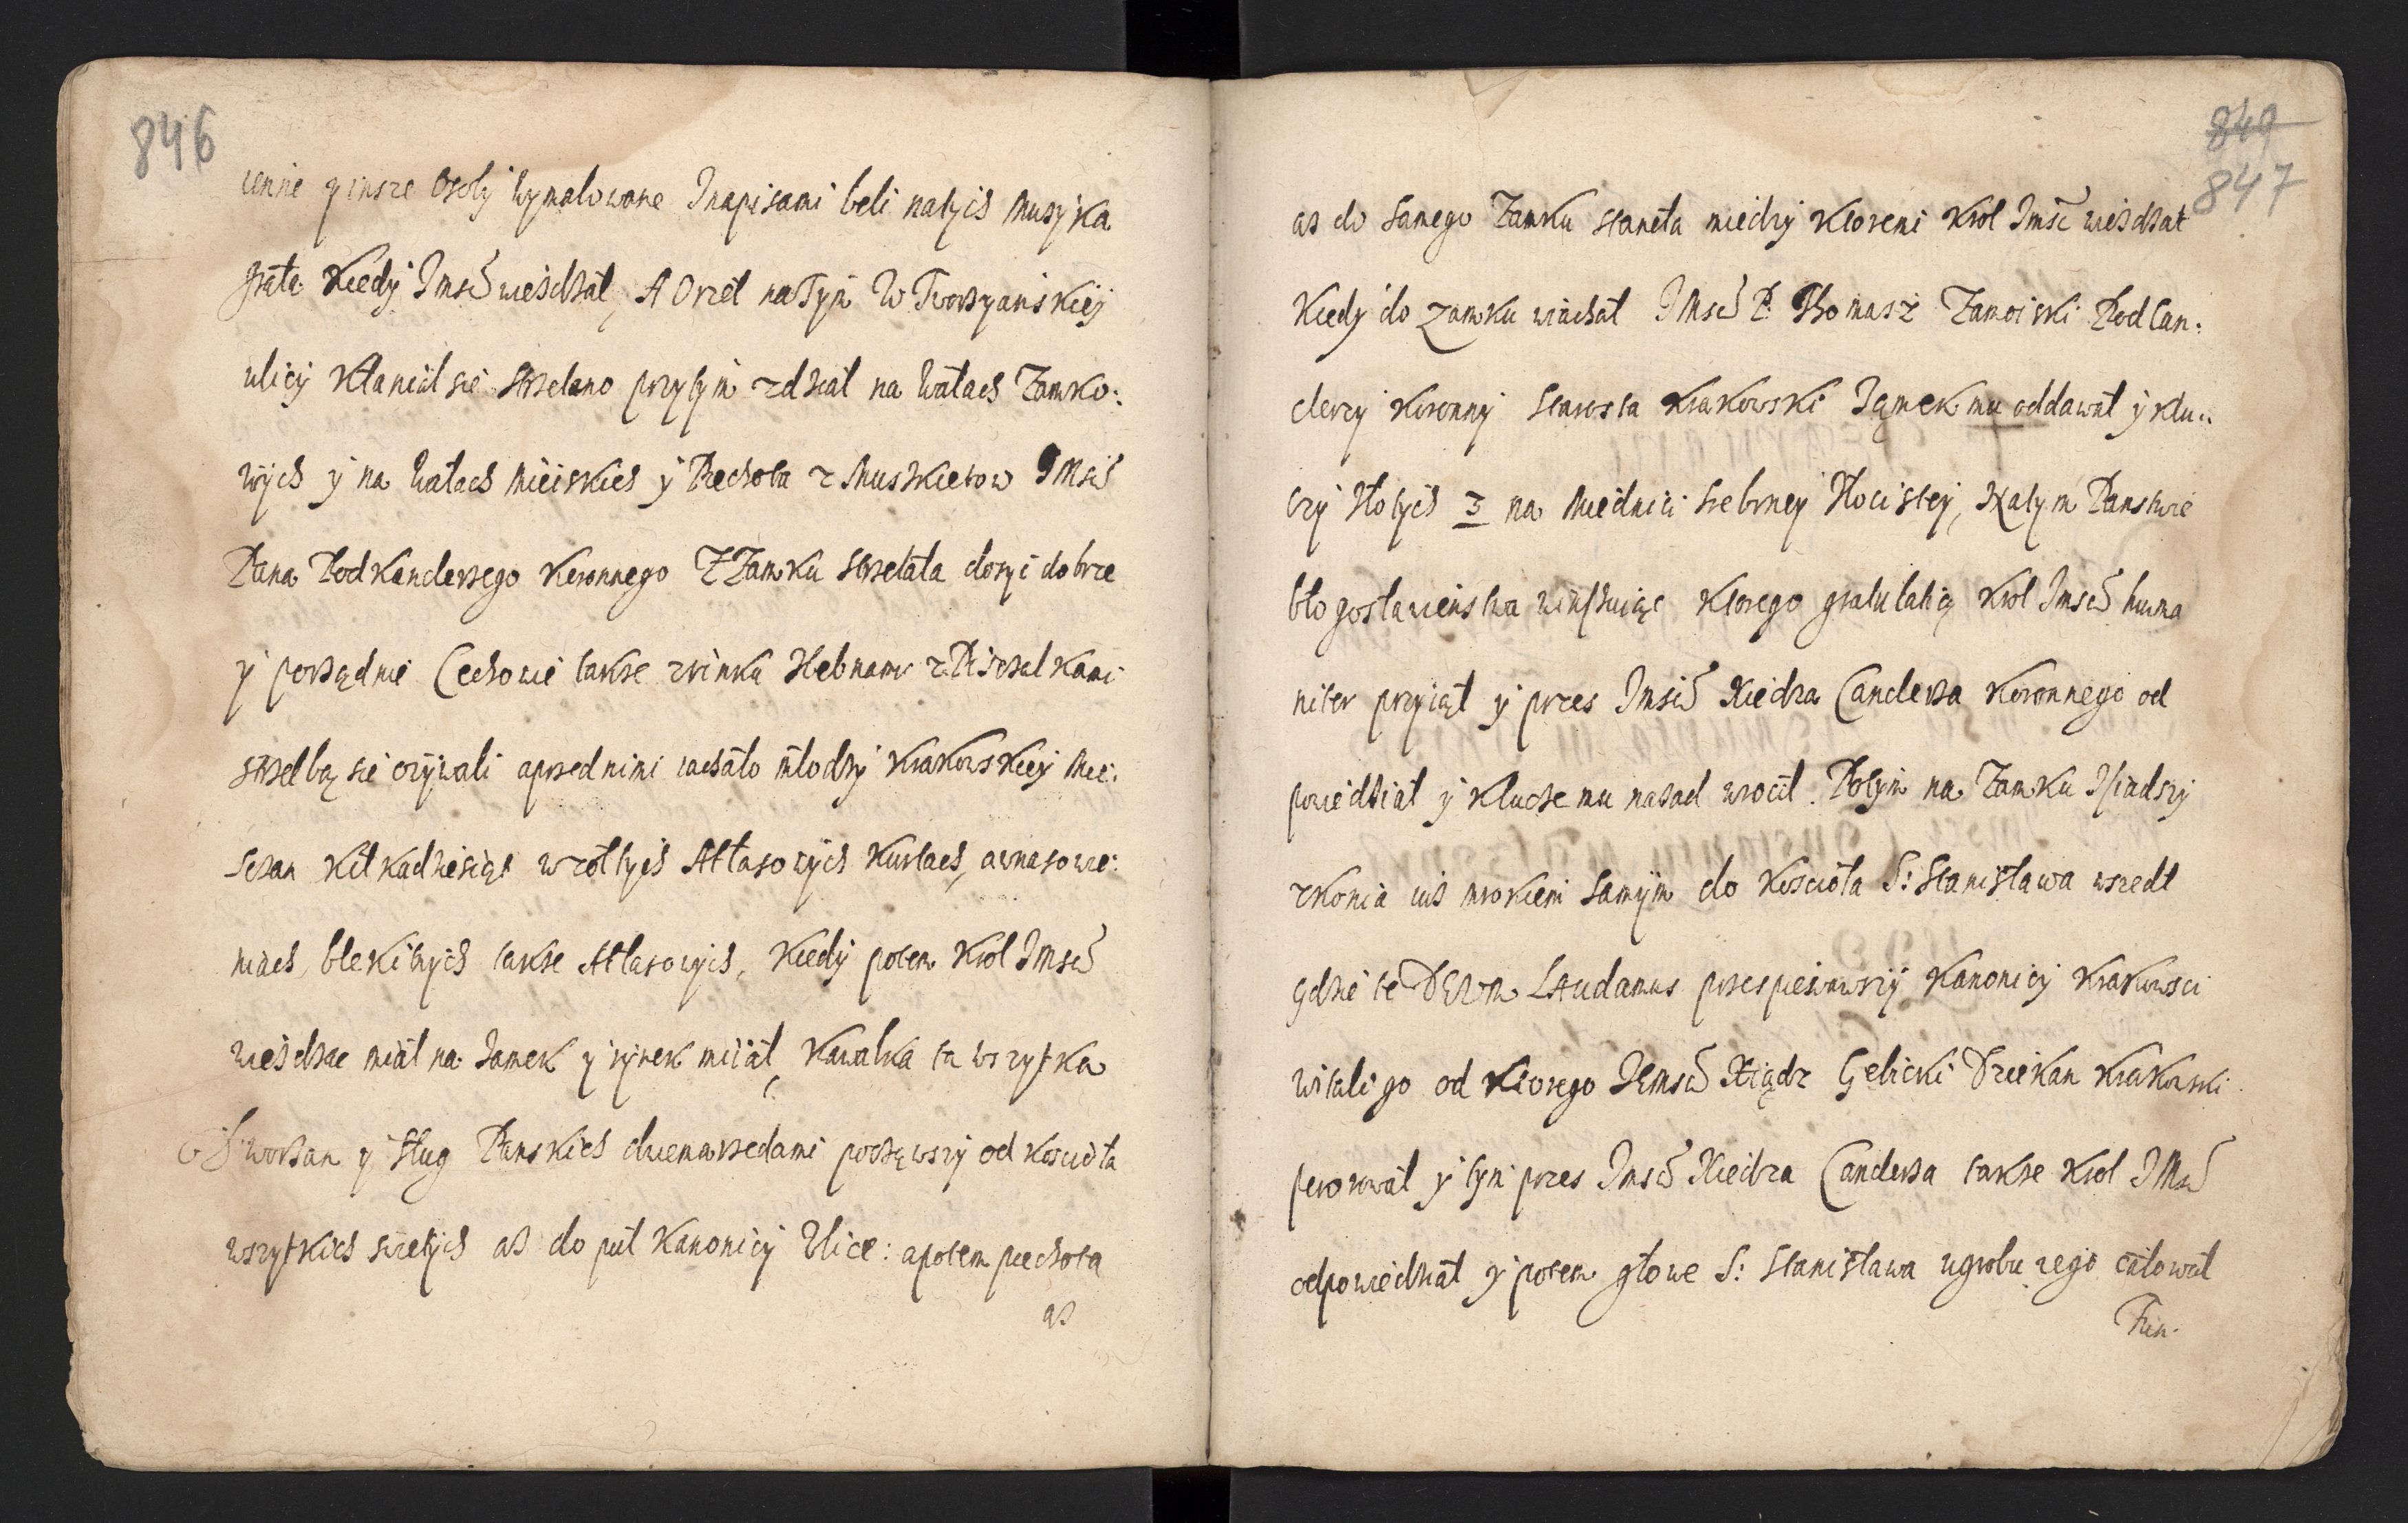 846
ienne y insze Osoby wymalowane Inapisami beli natych Musyka
grała. Kiedy Jmsć wieżdzał, A Orzeł natym W Tworzyańskiey
ulicy kłaniał sie strzelano przytym zdział na wałach Zamko:
wych y na wałach Mieiskich y Piechota z Muszkietow JMsci
Pana Podkanclerzego Koronnego Z Zamku strzelała dosyć dobrze
y porządnie Cechowie także zrinku
strzelbą sie ozywali aprzednimi iachało młodzy Krakowskiey Mie:
sczan kilkadziesiąt w zołtych Atłasowych Kurtach,
niach, blekitnych także Atłasowych, Kiedy potem Krol Jmsć
wieżdzac miał na Zamek y rynek miiał, Kawalka ta wszytka
Dworzan y sług Pańskich dwiemarzedami począwszy od Kościoła
wszytkich swietych aż do puł Kanonicy Ulice: apotem piechota
aż
849
847
aż do samego Zamku staneła miedzy ktoremi Krol Jmść wieżdzał
Kiedy do Zamku wiachał JMsć P. Thomasz Zamoiski Podcan:
clerzy Koronny Starosta Krakowski Zamek mu oddawał y klu:
czy złotych 3 na Miednici srebrney złocistey, Natym Panstwie
błogosławienstwa winszuiąc ktorego gratulatią Krol Jmsć huma
niter przyiął y przes Jmsci Xiedza Canclerza Koronnego od
powiedział y klucze mu nazad wrocił. Potym na Zamku Zsiadszy
zkonia iuż mrokiem samym do Kościoła S: Stanisława wszedł
gdzie te DEUM LAudamus przespiewawszy Kanonicy Krakowsci
witali go od ktorego JEmsć Xiądz Gebicki Dziekan Krakowski
perorował y tyn przes Jmsci Xiedza Canclerza także Krol JMsć
odpowiedział y potem głowe S: Stanisława ugrobu iego całował